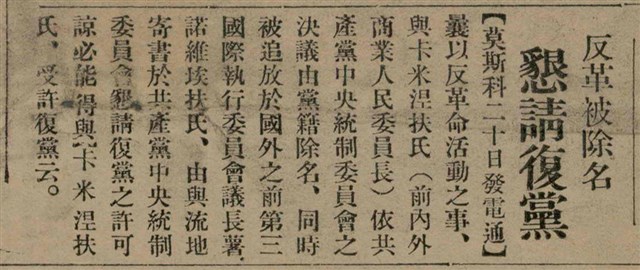 反革被除名
懇請復黨
【莫斯科二十日發電通】
曩以反革命活動之事、
與卡米涅扶氏（前內外
商業人民委員長）依共
產黨中央統制委員會之
決議由黨籍除名、同時
被追放於國外之前第三
國際執行委員會議長署、
諾維埃扶氏、由與流地
寄書於共產黨中央統制
委員會懇請復黨之許可
諒必能得與卡米涅扶
氏、受許復黨云。